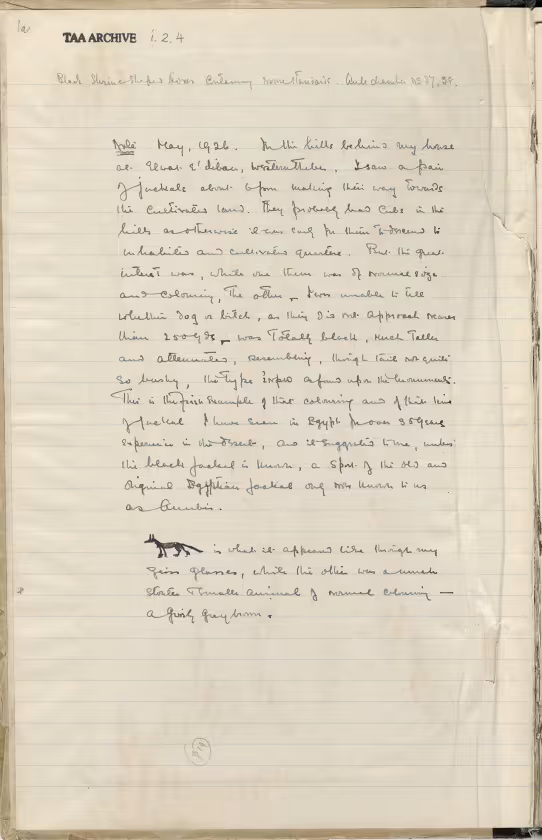 1a
TAA ARCHIVE i. 2. 4
Black Shrine-shaped Boxes Containing
Note May, 1926. In the hills behind my house
at Elwat e' diban, Western Thebes, I saw a pair
of jackals about 6 p.m. making their way towards
the cultivated land. They probably had cubs in the
hills as otherwise it was early for them to descend to
inhabited and cultivated quarters. But the great
interest was, while one them was of normal size
and colouring, the other – I was unable to tell
whether dog or bitch, as they did not approach nearer
than 250 yds – was totally black, much taller
and attenuated, resembling, though tail not quite
so bushy, the type one found upon the monuments.
This is the first example of that colouring and of that kind
of jackal I have seen in Egypt in over 35 years
experience in the desert, and it suggested to me, unless
the black jackal is known, a sport of the old and
original Egyptian jackal only now known to us
as Anubis.
is what it appeared like through my
Zeiss glasses, while the other was a much
stouter & smaller animal of normal colouring —
a grisly grey brown.